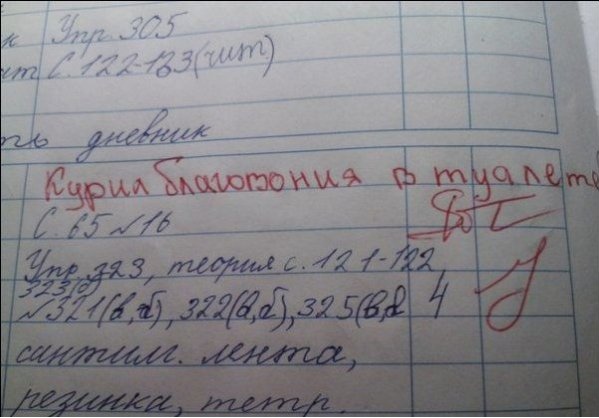 к Упр. 305
ит С. 122-123 (чит)
ть дневник
Курил благовония в туалете
С. 65 №16
Упр. 323, теория с. 121-122,
323(б)
№321(в,г), 322(в,г), 325(в,г 4
сантим. лента,
резинка, тетр.